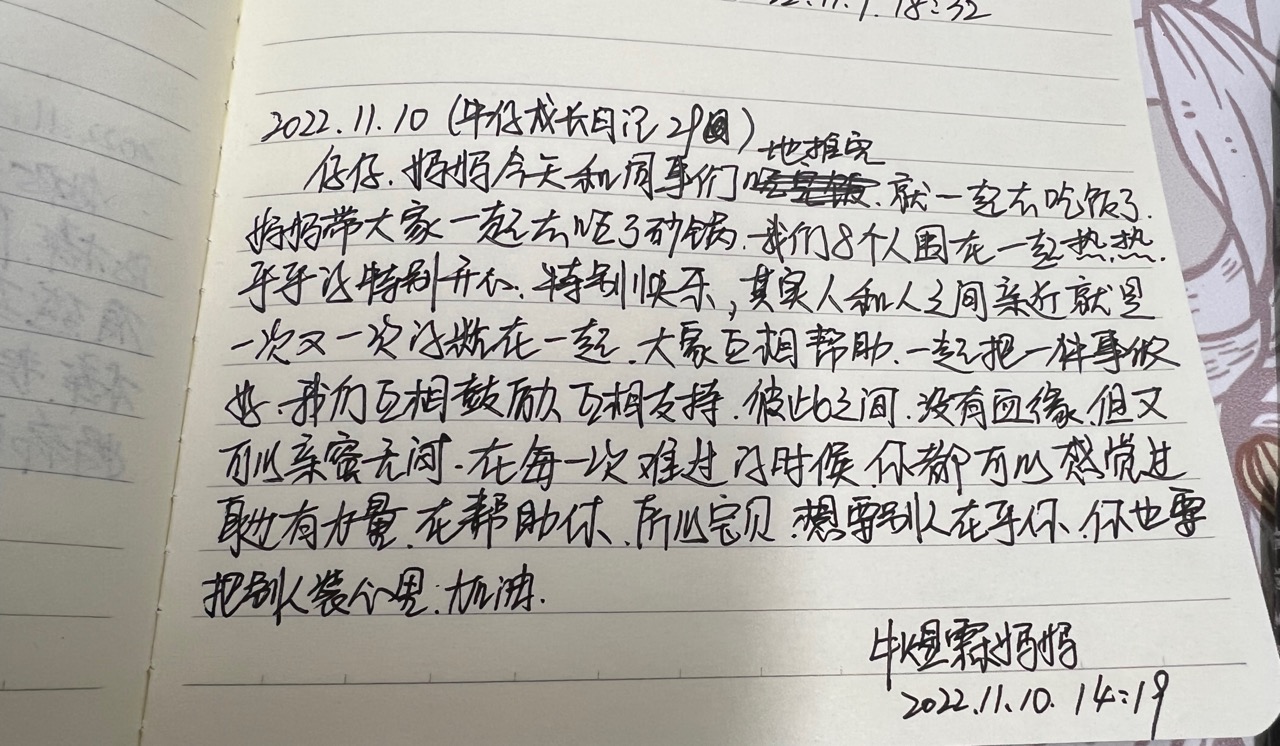 18:32
2022.11.10 (牛仔成长日记29回)
地推完
仔仔.妈妈今天和同事们 就一起去吃饭了.
妈妈带大家一起去吃了砂锅.我们8个人围在一起热.热.
乎乎的特别开心.特别快乐,其实人和人之间亲近就是
一次又一次的粘在一起.大家互相帮助.一起把一件事做
好.我们互相鼓励互相支持.彼此之间.没有血缘.但又
可以亲密无间.在每一次难过的时候 你都可以感觉过
有力量.在帮助你.所以宝贝.想要别人在乎你.你也要
把别人装心里.加油.
牛煜霖妈妈
2022.11.10. 14:19